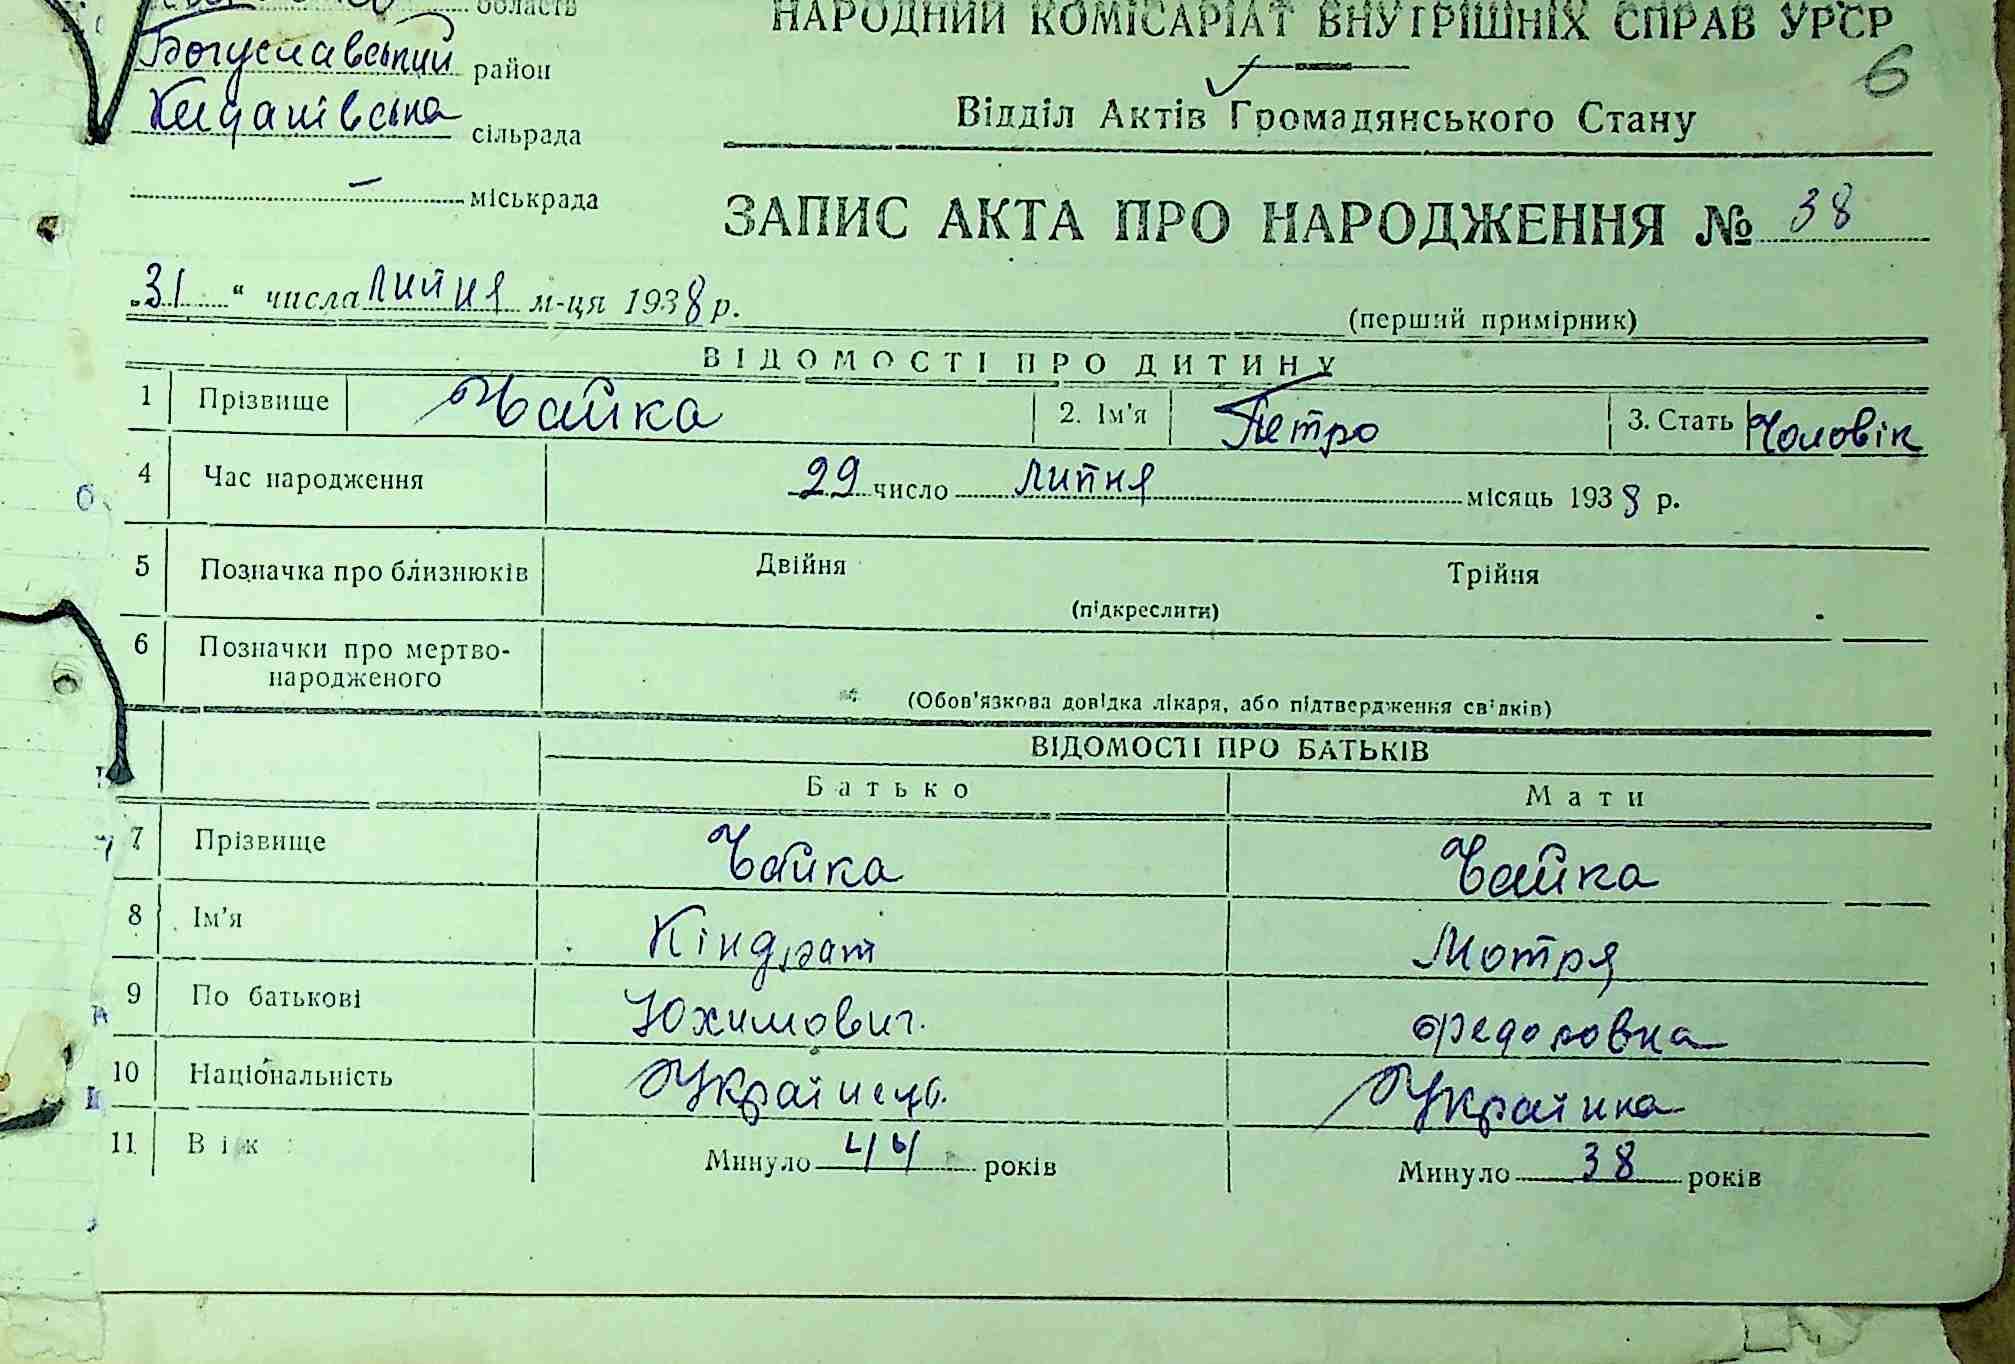 область
НАРОДНИЙ КОМІСАРІАТ ВНУТРІШНІХ СПРАВ УРСР
Богуславський район
6
Киданівська сільрада
Відділ Актів Громадянського Стану
міськрада
ЗАПИС АКТА ПРО НАРОДЖЕННЯ № 38
„31“ числа липня м-ця 1938 р.
(перший примірник)
ВІДОМОСТІ ПРО ДИТИНУ
1 Прізвище Чайка 2. Ім'я Петро 3. Стать Чоловік
4 Час народження 29 число липня місяць 1938 р.
5 Позначка про близнюків Двійня Трійня
(підкреслити)
6 Позначки про мертво-
народженого
(Обов'язкова довідка лікаря, або підтвердження свідків)
ВІДОМОСТІ ПРО БАТЬКІВ
Батько Мати
7 Прізвище Чайка Чайка
8 Ім'я Кіндрат Мотря
9 По батькові Юхимович. Федоровна
10 Національність Українець. Українка
11 Вік Минуло 44 років Минуло 38 років